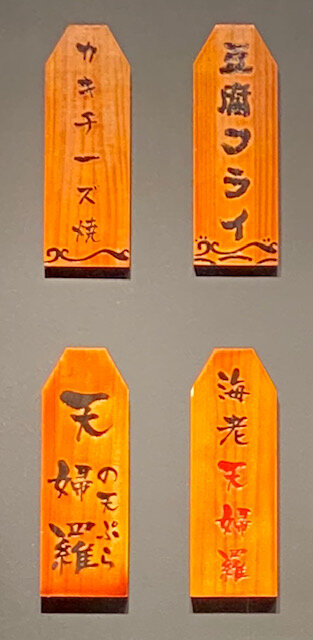 カキチーズ焼
豆腐フライ
天婦羅
の天ぷら
海老天婦羅